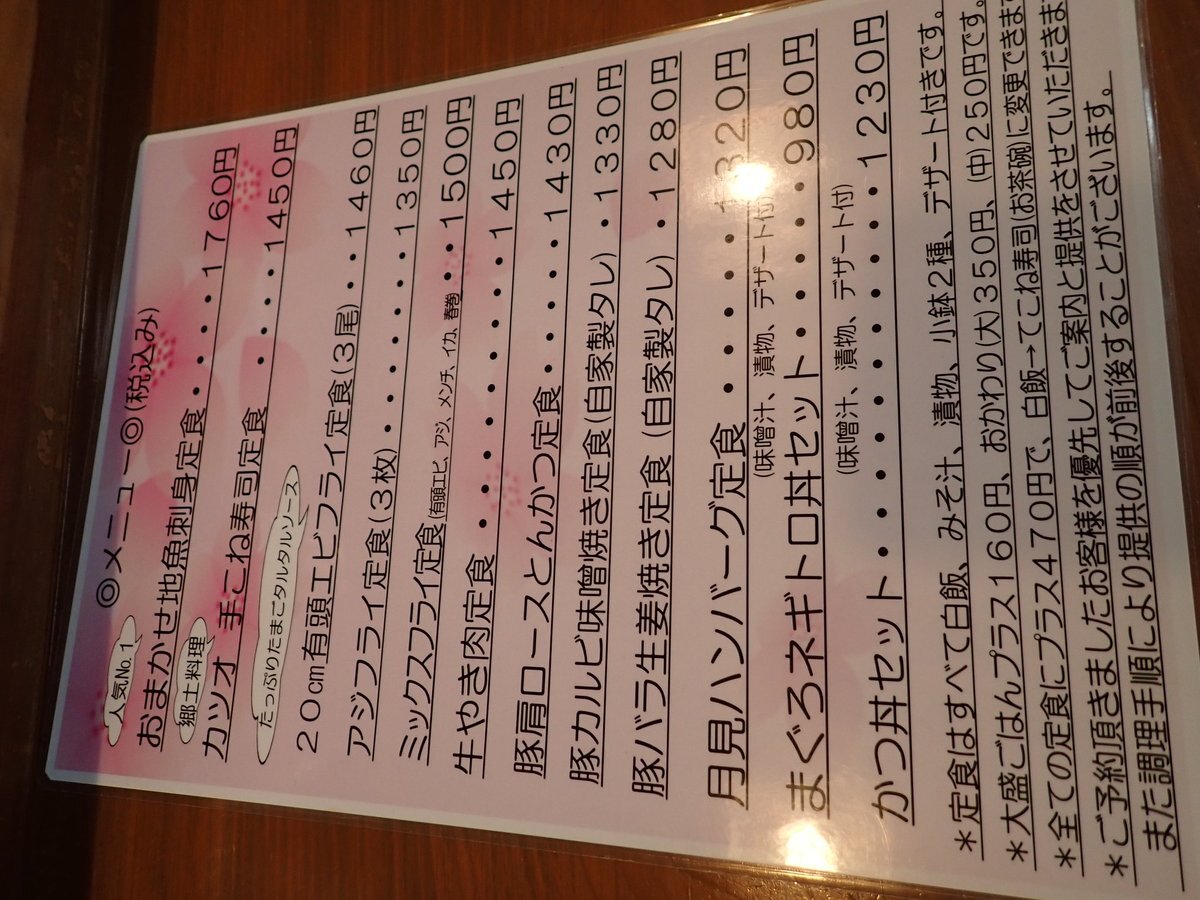 ◎メニュー◎(税込み)
人気No.1
おまかせ地魚刺身定食・・・・・1760円
郷土料理
カツオ 手こね寿司定食 ・・・・1450円
たっぷりたまごタルタルソース
20cm有頭エビフライ定食(3尾)・・1460円
アジフライ定食(3枚)・・・・・・・1350円
ミックスフライ定食(有頭エビ、アジ、メンチ、イカ、春巻・・・1500円
牛やき肉定食・・・・・・・・・1450円
豚肩ロースとんかつ定食・・・・・1430円
豚カルビ味噌焼き定食(自家製タレ)・1330円
豚バラ生姜焼き定食(自家製タレ)・1280円
月見ハンバーグ定食・・・・・・1320円
(味噌汁、漬物、デザート付)
まぐろネギトロ丼セット・・・・・980円
(味噌汁、漬物、デザート付)
かつ丼セット・・・・・・・・・・1230円
*定食はすべて白飯、みそ汁、漬物、小鉢2種、デザート付きです。
*大盛ごはんプラス160円、おかわり(大)350円、(中)250円です。
*全ての定食にプラス470円で、白飯→てこね寿司(お茶碗)に変更できます
*ご予約頂きましたお客様を優先してご案内と提供をさせていただきま
また調理手順により提供の順が前後することがございます。